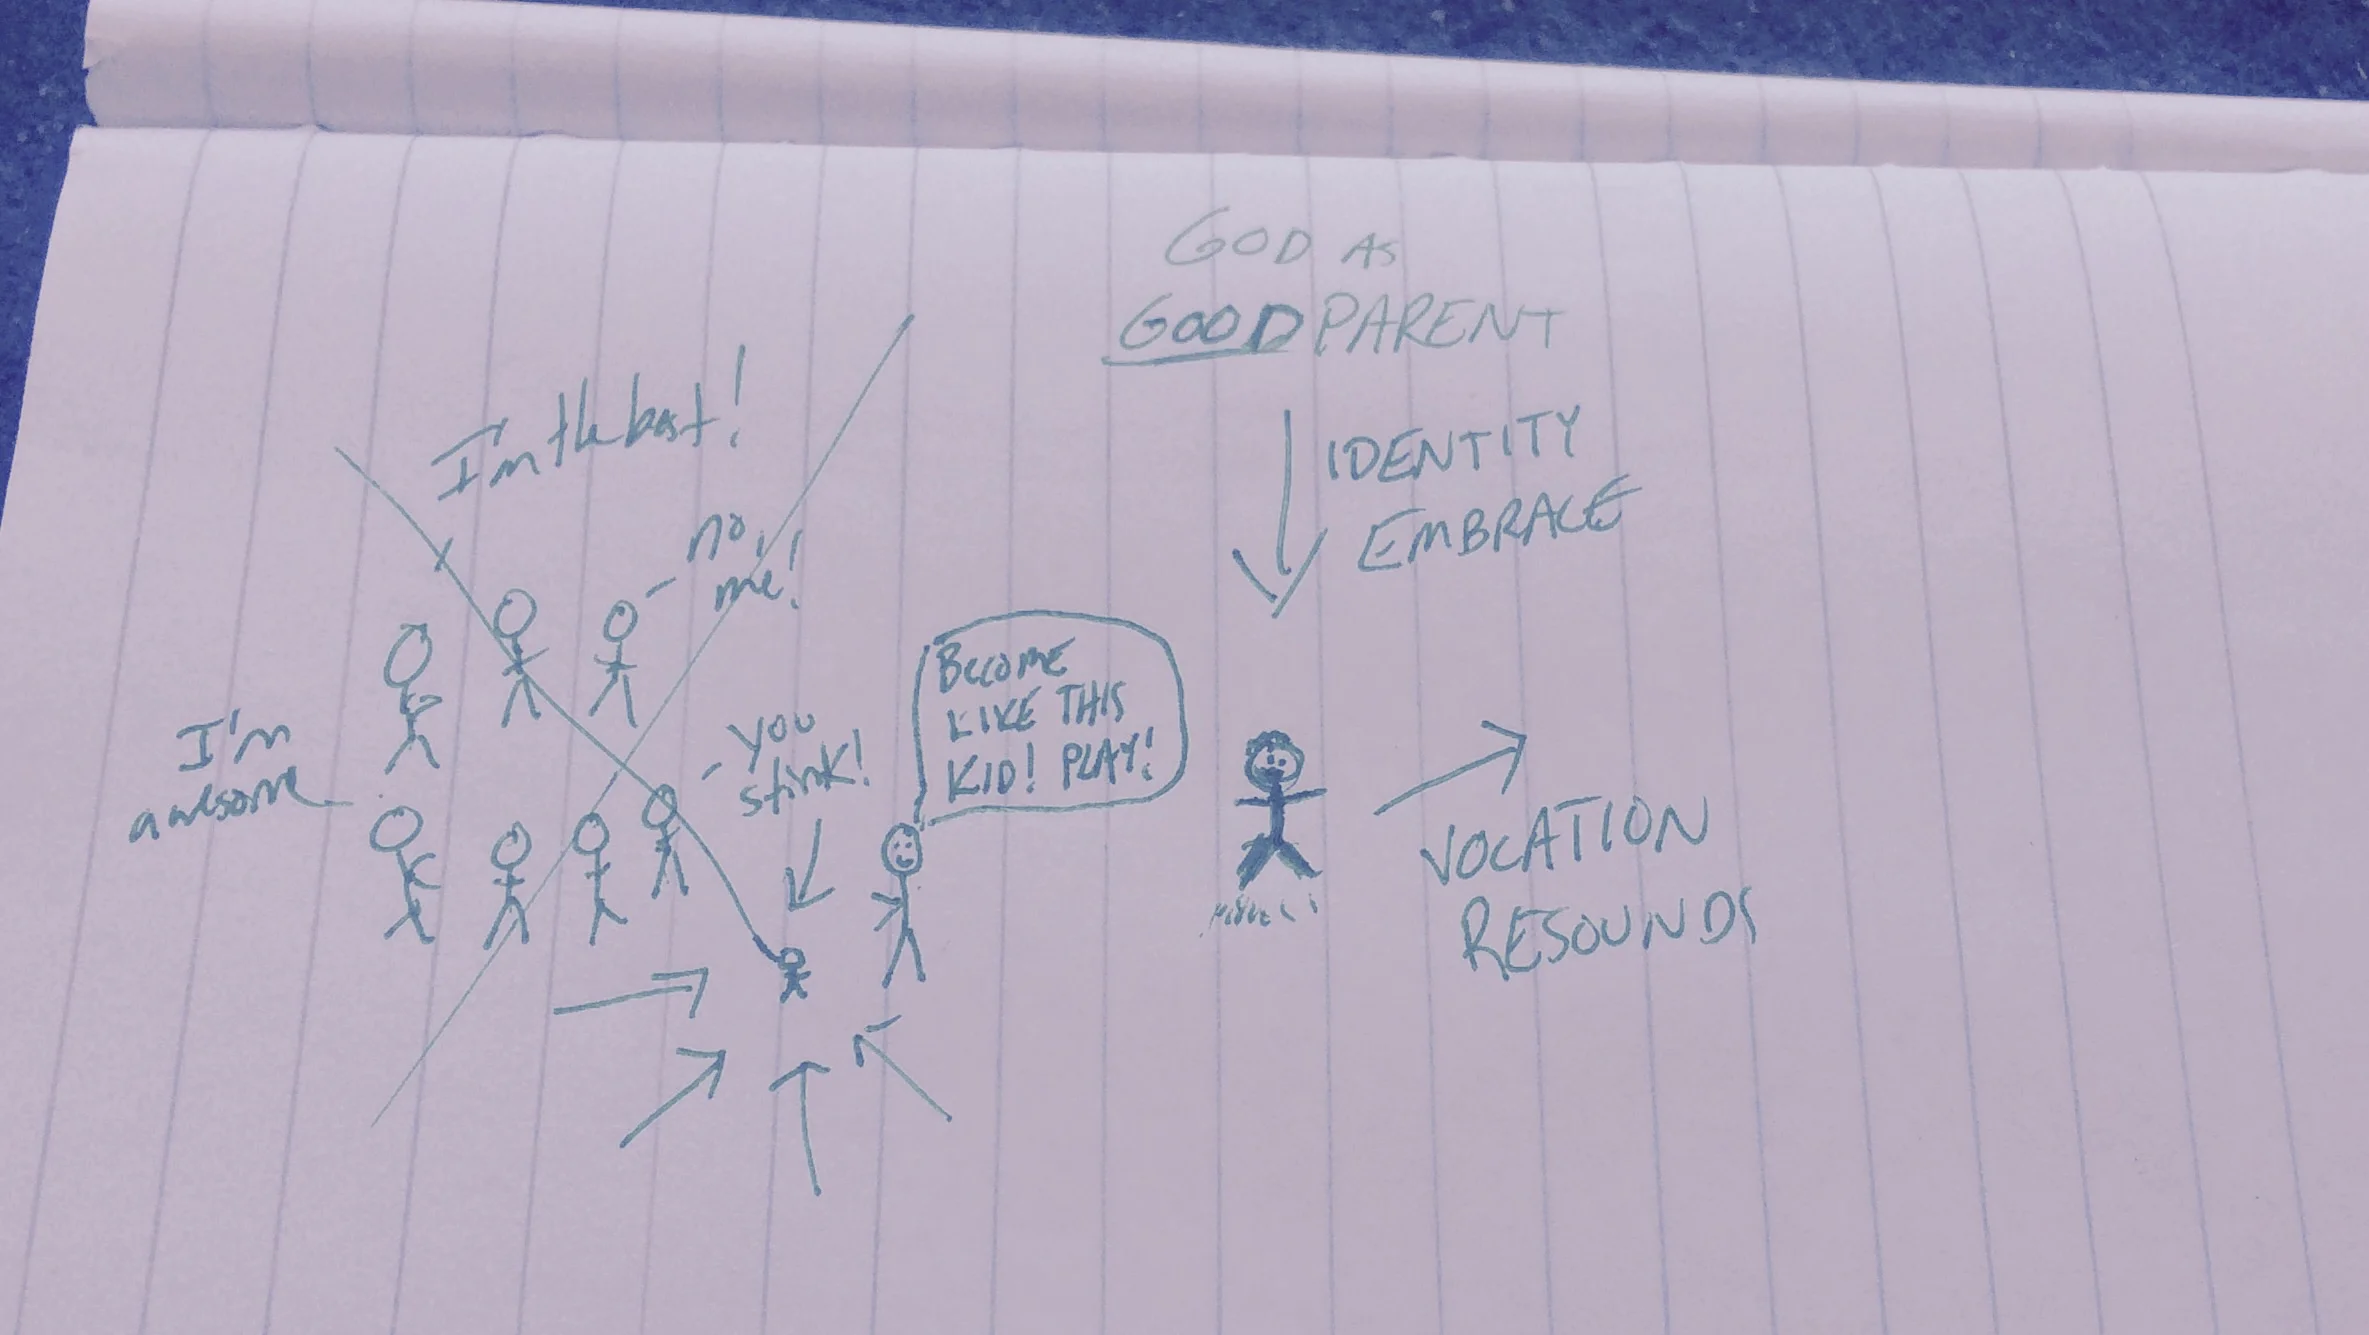 GOD AS
GOOD PARENT
I'm the best!
no,
me!
IDENTITY
EMBRACE
I'm
awesome
you
stink!
BECOME
LIKE THIS
KID! PLAY!
VOCATION
RESOUNDS